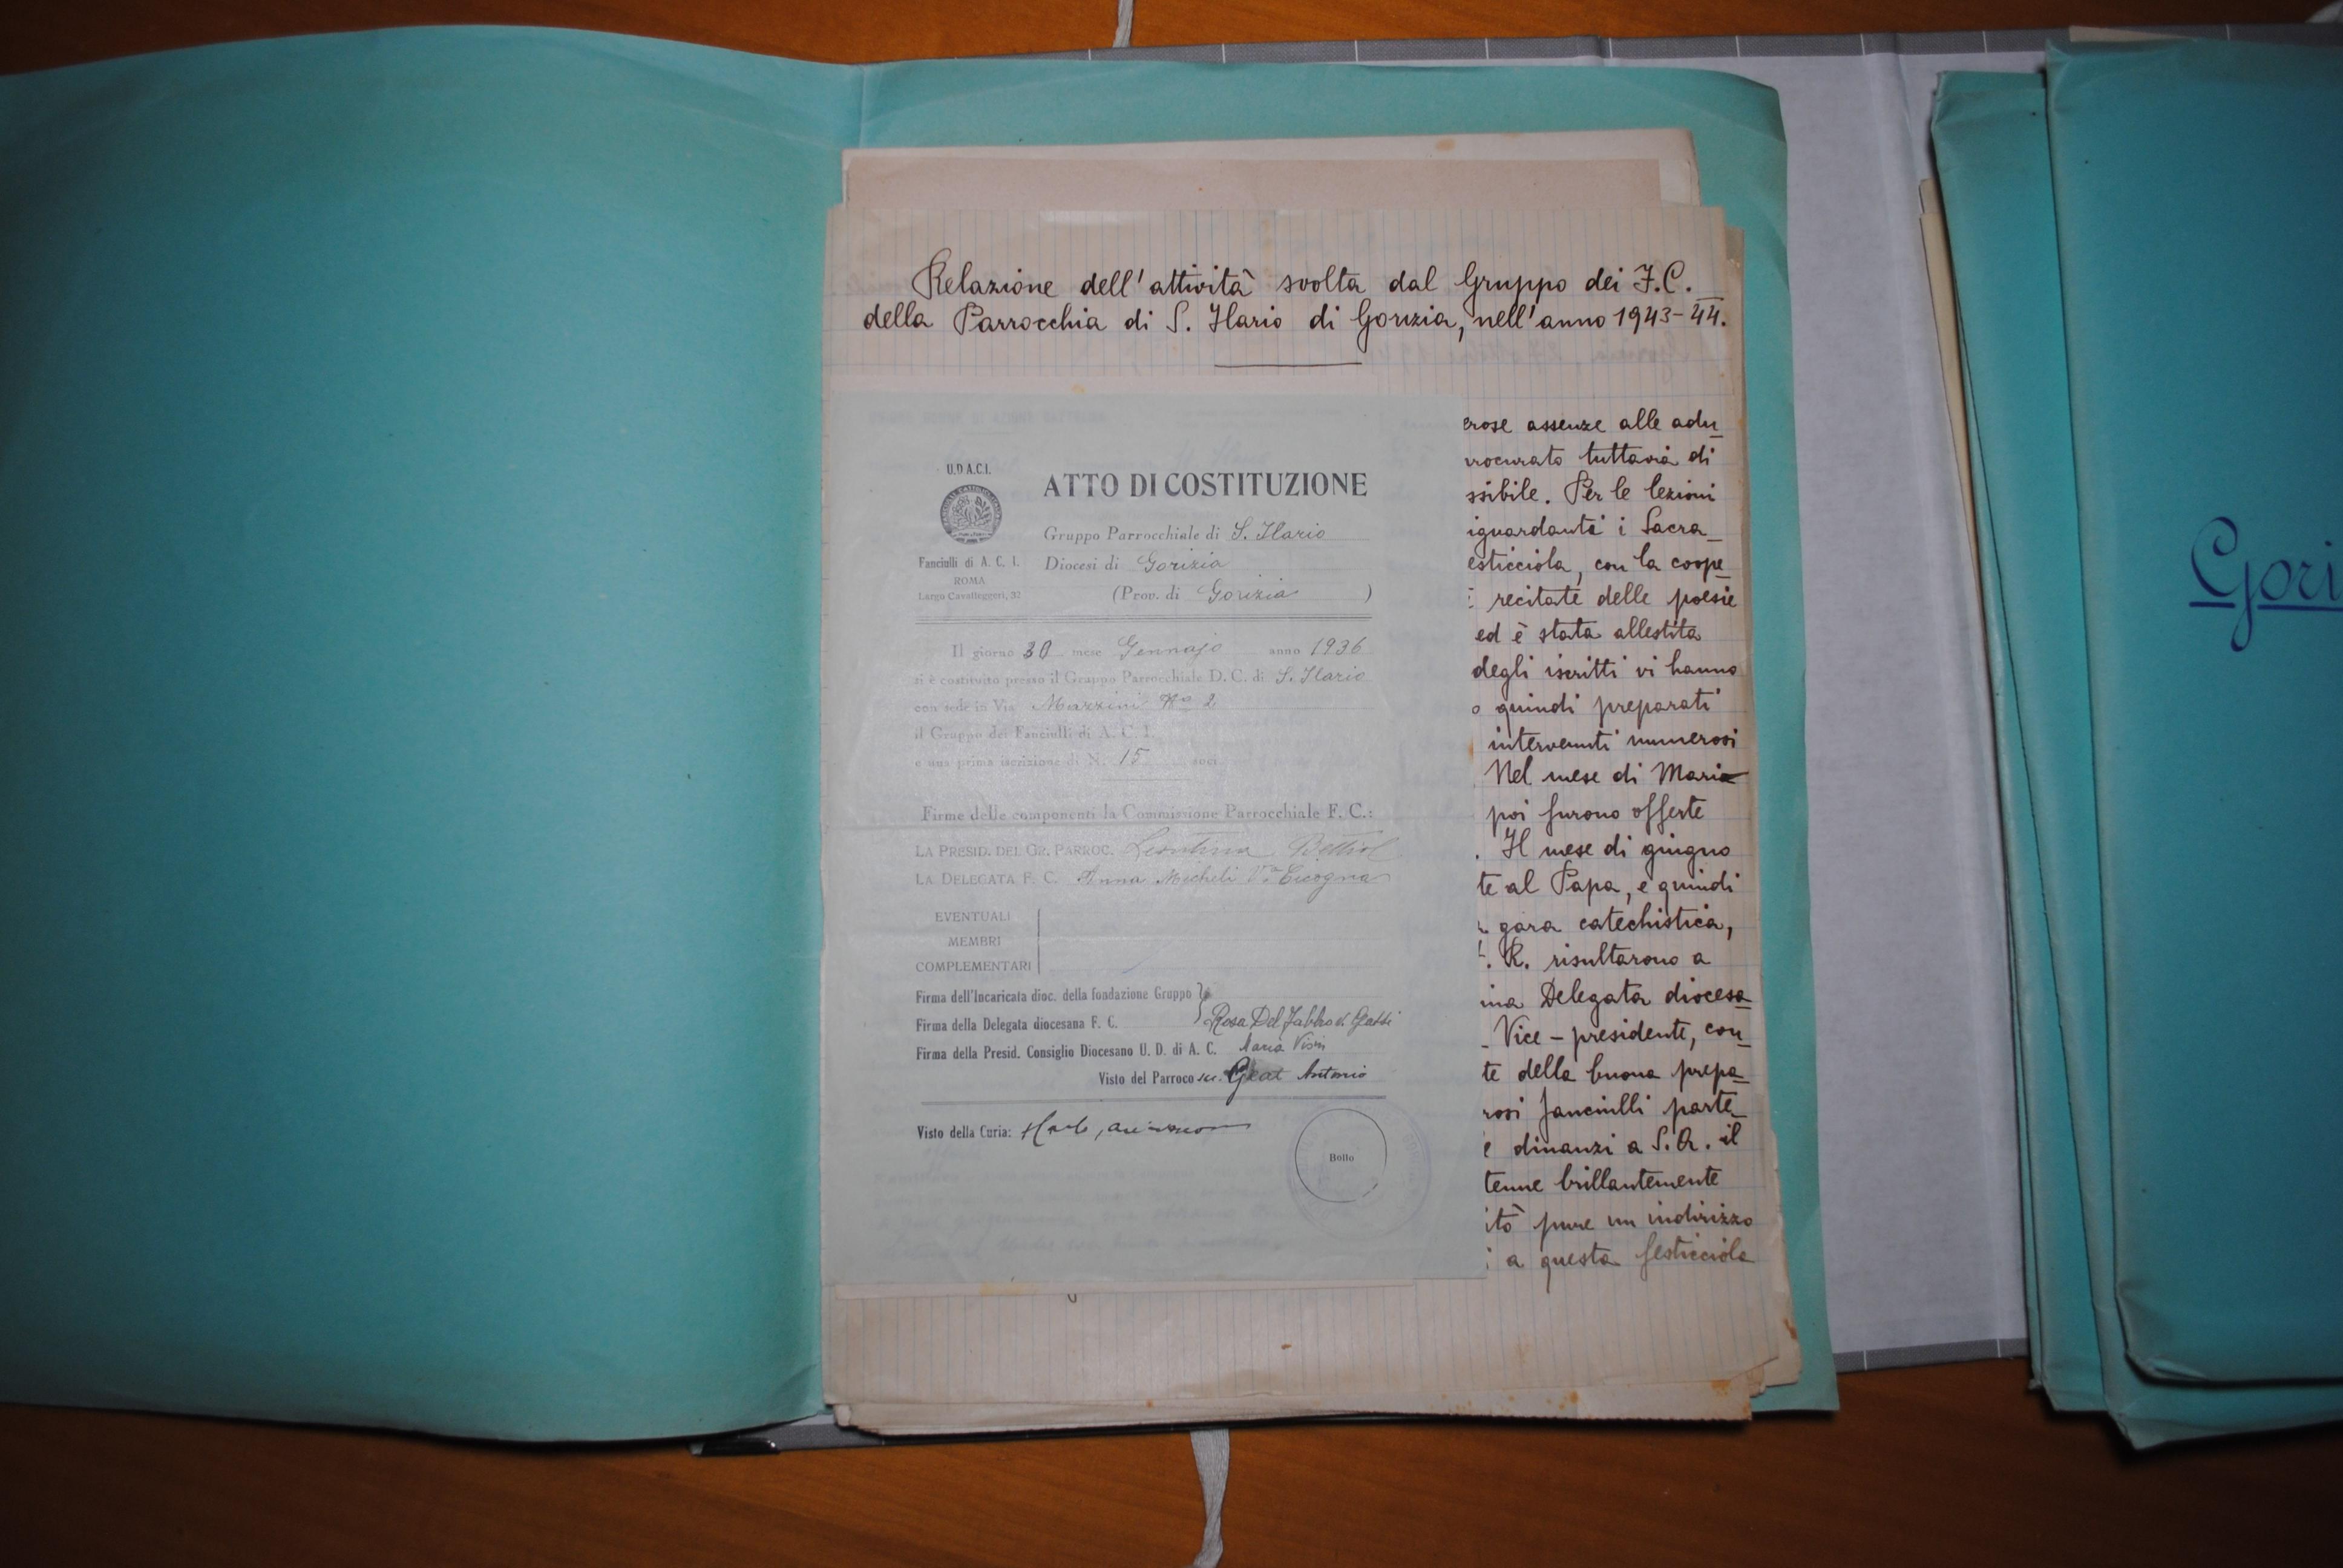 Relazione dell'attività svolta dal Gruppo dei F.C.
della Parrocchia di S. Ilario di Gorizia, nell'anno 1943-44.
U.D.A.C.I.
Fanciulli di A. C. I.
ROMA
Largo Cavalleggeri, 32
ATTO DI COSTITUZIONE
Gruppo Parrocchiale di S. Ilario
Diocesi di Gorizia
(Prov. di Gorizia )
Il giorno 30 mese Gennajo anno 1936
si è costituito presso il Gruppo Parrocchiale D. C. di S. Ilario
con sede in Via Mazzini No 2
il Gruppo dei Fanciulli di A. C. I.
e una prima iscrizione di N. 15 soci
Firme delle componenti la Commissione Parrocchiale F. C.:
LA PRESID. DEL GR. PARROC. Leontina Bettiol
LA DELEGATA F. C. Anna Micheli Va Cicogna
EVENTUALI
MEMBRI
COMPLEMENTARI
Firma dell'Incaricata dioc. della fondazione Gruppo
Firma della Delegata diocesana F. C. Rosa Del Fabbro
Firma della Presid. Consiglio Diocesano U. D. di A. C. Maria
Visto del Parroco Geat Antonio
Visto della Curia:
Bollo
erose assenze alle adu_
rocurato tuttavia di
ssibile. Per le lezioni
iguardanti i Sacra_
esticciola, con la coope_
recitate delle poesie
ed è stata allestita
degli iscritti vi hanno
o quindi preparati
intervenuti numerosi
Nel mese di Maria
poi furono offerte
. Il mese di giugno
te al Papa, e quindi
gara catechistica,
. R. risultarono a
ina Delegata diocesa_
_ Vice-presidente, con_
te della buona prepa_
rosi fanciulli parte_
e dinanzi a S.A. il
tenne brillantemente
itò pure un indirizzo
i a questa festicciola
Gori